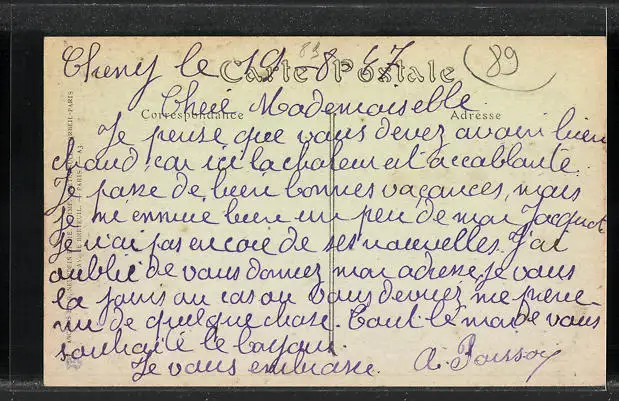 Cheny le 19 8 47
89
Carte Postale
Chère Mademoiselle
Correspondance
Adresse
Je pense que vous devez avoir bien
chaud, car ici la chaleur est accablante.
Je passe de bien bonnes vacances, mais
Je m'ennuie bien un peu de mon Jacquot
Je n'ai pas encore de ses nouvelles. J'ai
oublié de vous donner mon adresse, je vous
la jours au cas ou vous devriez me préve-
nir de quelque chose. Tout le monde vous
souhaite le bonjour.
Je vous embrasse.